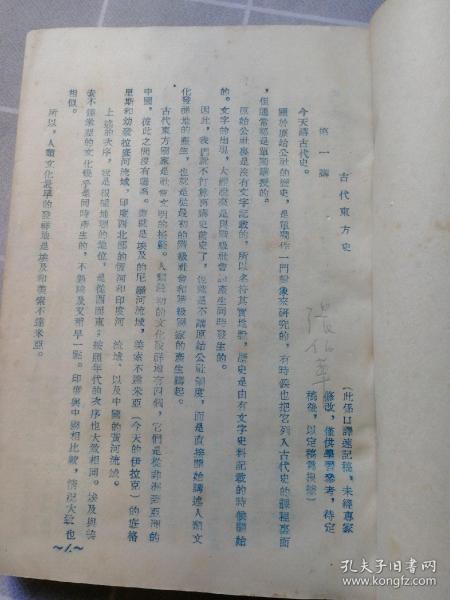 古代東方史
(此係口譯速記稿，未經專家
修改，僅供學習參考，待定
稿後，以定稿為根據)
第一講
張伯華
今天講古代史。
關於原始公社的歷史，是單獨作一門對象來研究的，有時候也把它列入古代史的課程裏面
，但通常都是單獨講授的。
原始公社裏是沒有文字記載的，所以名符其實地說，歷史是由有文字史料記載的時候開始
的。文字的出現，大體說來是與階級社會的產生同時發生的。
因此，我們就不打算講史前史了，也就是不講原始公社制度，而是直接開始講述人類文
化發源地的產生，也就是從最初的階級社會和階級國家的產生講起。
古代東方國家是社會文明的搖籃。人類最初的文化發祥地有四個，它們是從非洲至亞洲的
中國，彼此之間沒有聯系。這就是埃及的尼羅河流域，美索不達米亞（今天的伊拉克）的底格
里斯和幼發拉底河流域，印度西北部的恆河和印度河 流域，以及中國的黃河流域。
上述的次序，就是根據地理的地位，是從西而東；按照年代的次序也大致相同。埃及與美
索不達米亞的文化幾乎是同時產生的，不過埃及又稍早一點。印度與中國相比較，情況大致也
相似。
所以，人類文化最早的發祥地是埃及和美索不達米亞。
～1～
孔夫子旧书网